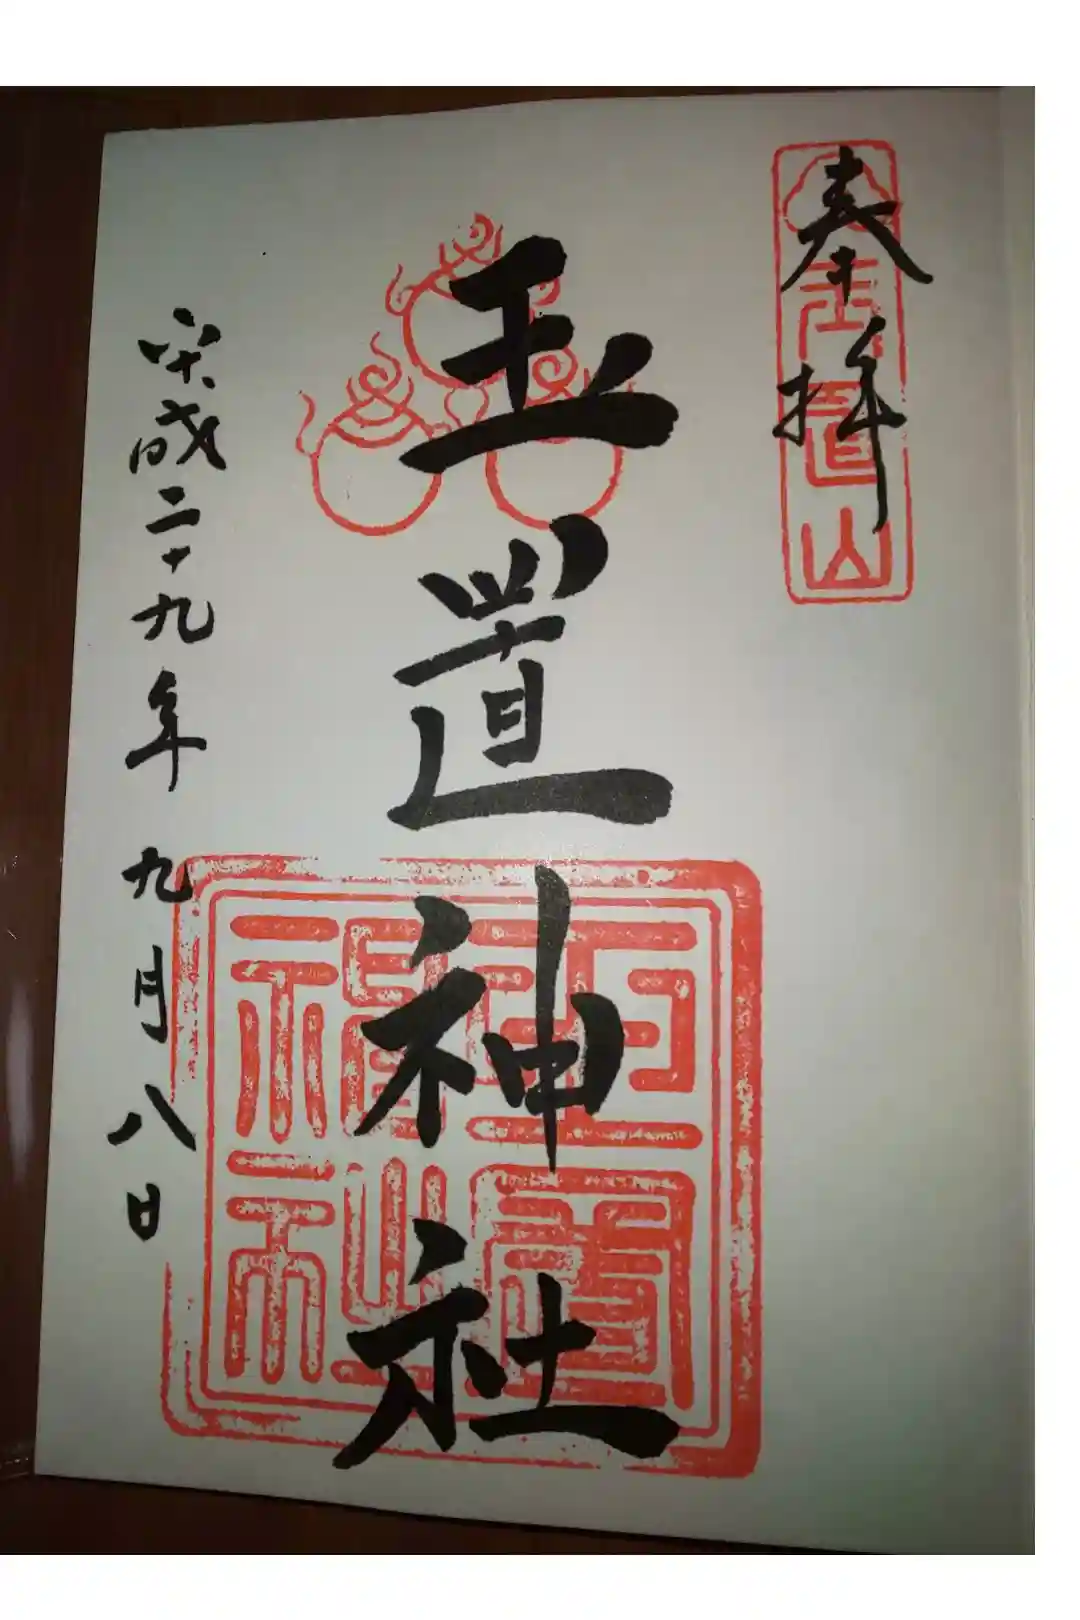 奉拝
玉置山
玉置神社
玉置
神社
平成二十九年九月八日